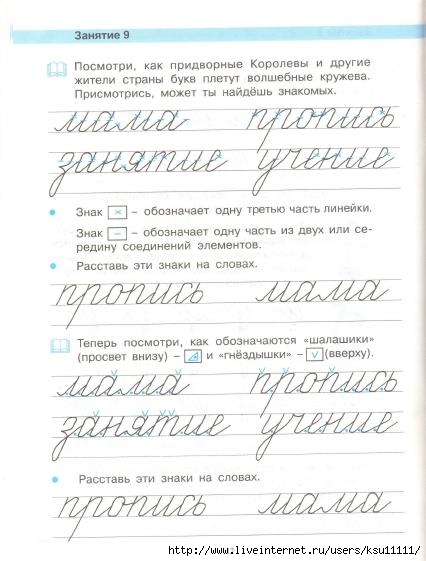 Занятие 9
Посмотри, как придворные Королевы и другие
жители страны букв плетут волшебные кружева.
Присмотрись, может ты найдёшь знакомых.
мама пропись
занятие учение
Знак × – обозначает одну третью часть линейки.
Знак – – обозначает одну часть из двух или се-
редину соединений элементов.
Расставь эти знаки на словах.
пропись мама
Теперь посмотри, как обозначаются «шалашики»
(просвет внизу) – и «гнёздышки» – v (вверху).
мама пропись
занятие учение
Расставь эти знаки на словах.
пропись мама
http://www.liveinternet.ru/users/ksu11111/